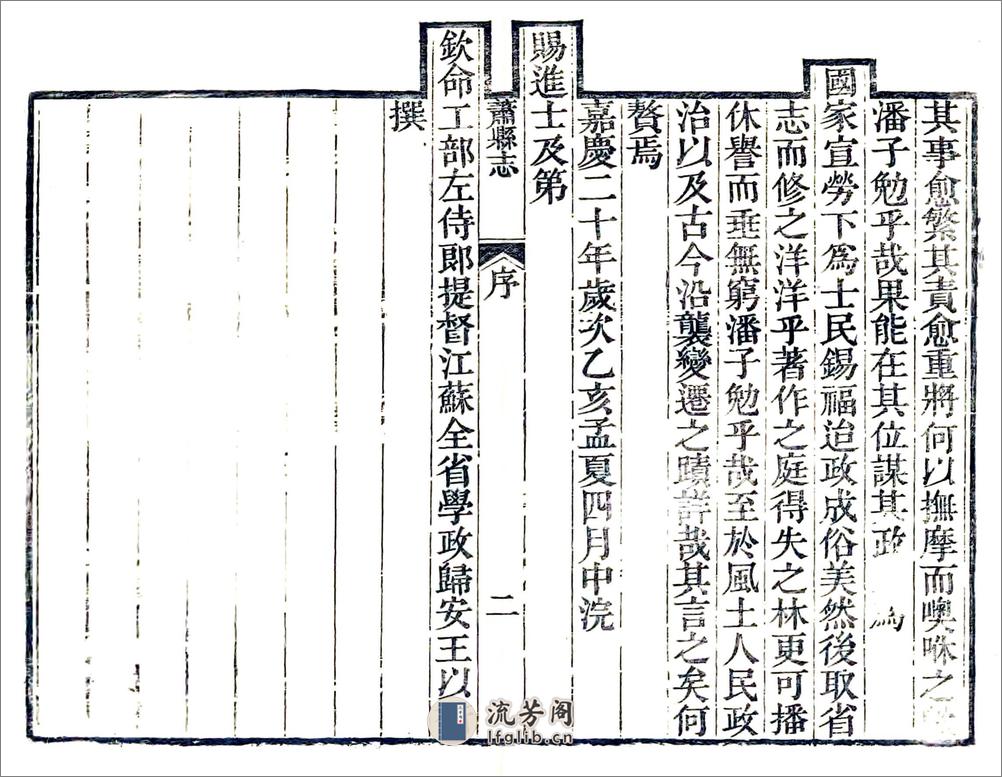 其事愈繁其責愈重將何以撫摩而噢咻之
潘子勉乎哉果能在其位謀其政 爲
國家宣勞下爲士民錫福治政成俗美然後取省
志而修之洋洋乎著作之庭得失之林更可播
休譽而垂無窮潘子勉乎哉至於風土人民政
治以及古今沿襲變遷之蹟詳哉其言之矣何
贅焉
嘉慶二十年歲次乙亥孟夏四月中浣
賜進士及第
蕭縣志 序 二
欽命工部左侍郎提督江蘇全省學政歸安王以
撰
流芳閣
lfglib.cn